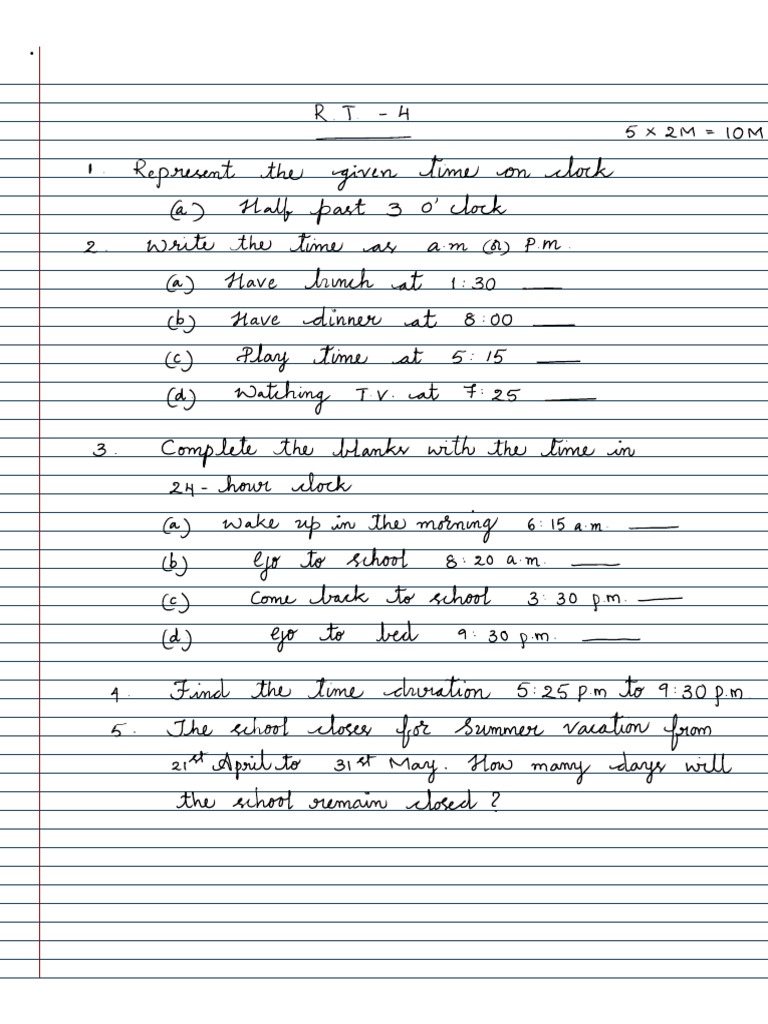 R.T. - 4
5 × 2M = 10M
1. Represent the given time on clock
(a) Half past 3 O'clock
2. Write the time as a.m (or) P.m.
(a) Have lunch at 1:30 ____
(b) Have dinner at 8:00 ____
(c) Play time at 5:15 ____
(d) Watching T.V. at 7:25 ____
3. Complete the blanks with the time in
24-hour clock
(a) Wake up in the morning 6:15 a.m. ____
(b) Go to school 8:20 a.m. ____
(c) Come back to school 3:30 p.m. ____
(d) Go to bed 9:30 p.m. ____
4. Find the time duration 5:25 p.m to 9:30 p.m
5. The school closes for Summer vacation from
21st April to 31st May. How many days will
the school remain closed?